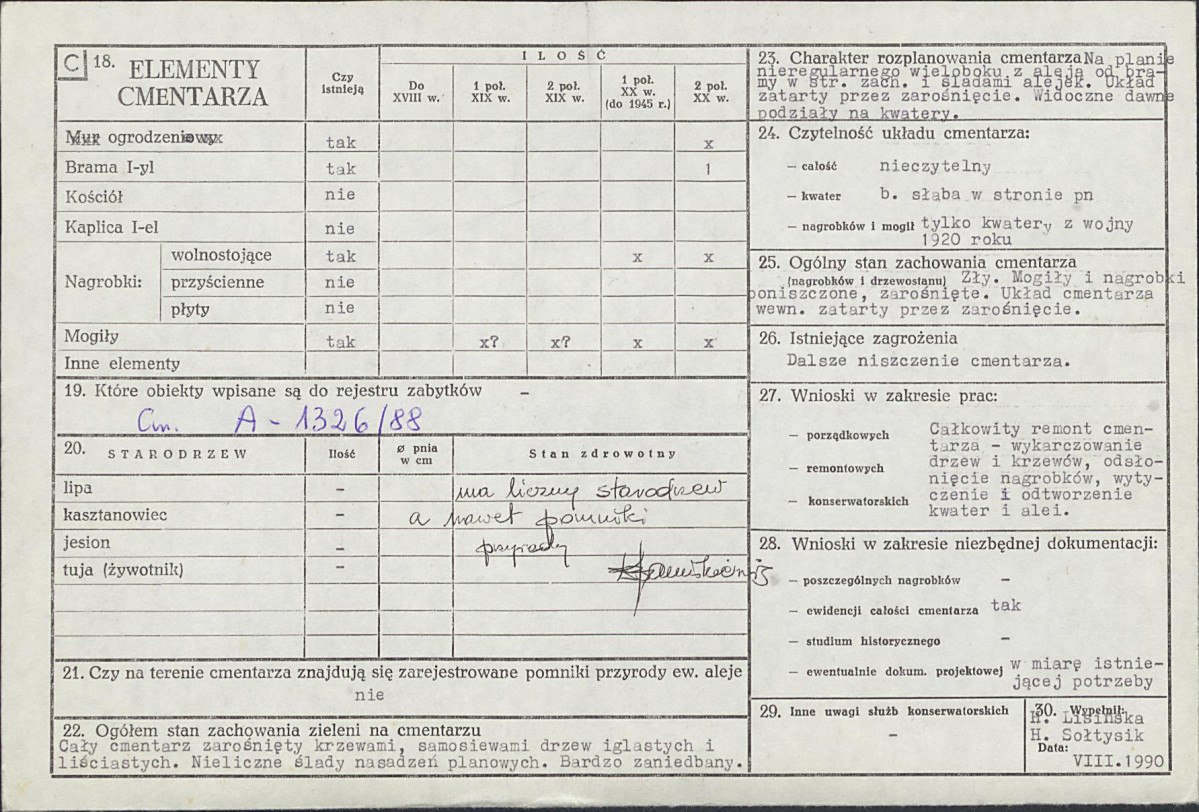 C 18. ELEMENTY CMENTARZA
Czy istnieją
ILOŚĆ
Do XVIII w.
1 poł. XIX w.
2 poł. XIX w.
1 poł. XX w. (do 1945 r.)
2 poł. XX w.
Mur ogrodzeniowy tak x
Brama I-yl tak 1
Kościół nie
Kaplica I-el nie
Nagrobki:
wolnostojące tak x x
przyścienne nie
płyty nie
Mogiły tak x? x? x x
Inne elementy
19. Które obiekty wpisane są do rejestru zabytków –
Cm. A - 1326/88
20. STARODRZEW Ilość ø pnia w cm Stan zdrowotny
lipa – ma liczny starodrzew
kasztanowiec – a nawet pomniki
jesion – przyrody
tuja (żywotnik) –
21. Czy na terenie cmentarza znajdują się zarejestrowane pomniki przyrody ew. aleje
nie
22. Ogółem stan zachowania zieleni na cmentarzu
Cały cmentarz zarośnięty krzewami, samosiewami drzew iglastych i
liściastych. Nieliczne ślady nasadzeń planowych. Bardzo zaniedbany.
23. Charakter rozplanowania cmentarza Na planie
nieregularnego wieloboku z aleją od bra-
my w str. zach. i śladami alejek. Układ
zatarty przez zarośnięcie. Widoczne dawne
podziały na kwatery.
24. Czytelność układu cmentarza:
– całość nieczytelny
– kwater b. słaba w stronie pn
– nagrobków i mogił tylko kwatery z wojny
1920 roku
25. Ogólny stan zachowania cmentarza
(nagrobków i drzewostanu) Zły. Mogiły i nagrobki
poniszczone, zarośnięte. Układ cmentarza
wewn. zatarty przez zarośnięcie.
26. Istniejące zagrożenia
Dalsze niszczenie cmentarza.
27. Wnioski w zakresie prac:
– porządkowych
– remontowych
– konserwatorskich
Całkowity remont cmen-
tarza – wykarczowanie
drzew i krzewów, odsło-
nięcie nagrobków, wyty-
czenie i odtworzenie
kwater i alei.
28. Wnioski w zakresie niezbędnej dokumentacji:
– poszczególnych nagrobków –
– ewidencji całości cmentarza tak
– studium historycznego –
– ewentualnie dokum. projektowej w miarę istnie-
jącej potrzeby
29. Inne uwagi służb konserwatorskich
–
30. Wypełnił:
H. Lisińska
H. Sołtysik
Data:
VIII.1990